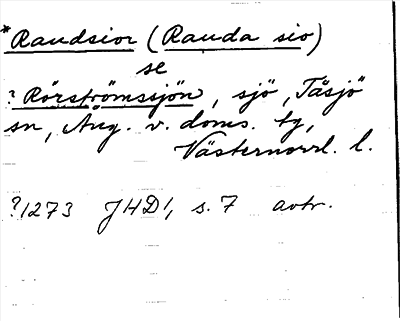 *Raudsior (Rauda sio)
se
? Rörströmssjön, sjö, Tåsjö
sn, Ång. v. doms. tg,
Västernorrl. l.
?1273 JHD1, s. 7 avtr.